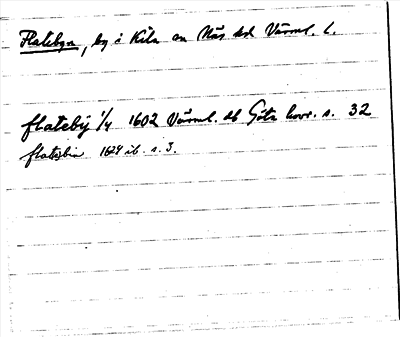 Flatebyn, by i Kila sn Näs hd Värml. l.
flatebÿ 1/4 1602 Värml. Jb Göta hovr. s. 32
flatebin 1624 ib. s. 3.